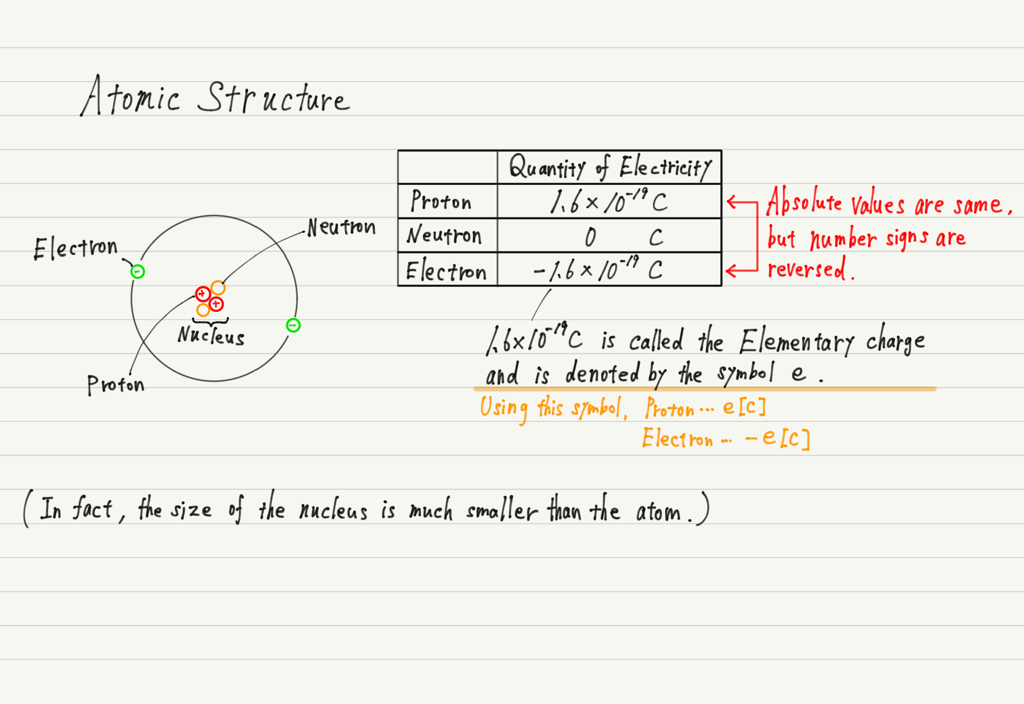 Atomic Structure
Quantity of Electricity
Proton 1.6×10⁻¹⁹ C
Neutron 0 C
Electron -1.6×10⁻¹⁹ C
Absolute values are same,
but number signs are
reversed.
Electron
Neutron
-
+
+
-
Nucleus
Proton
1.6×10⁻¹⁹C is called the Elementary charge
and is denoted by the symbol e.
Using this symbol, Proton … e[c]
Electron … -e[c]
(In fact, the size of the nucleus is much smaller than the atom.)